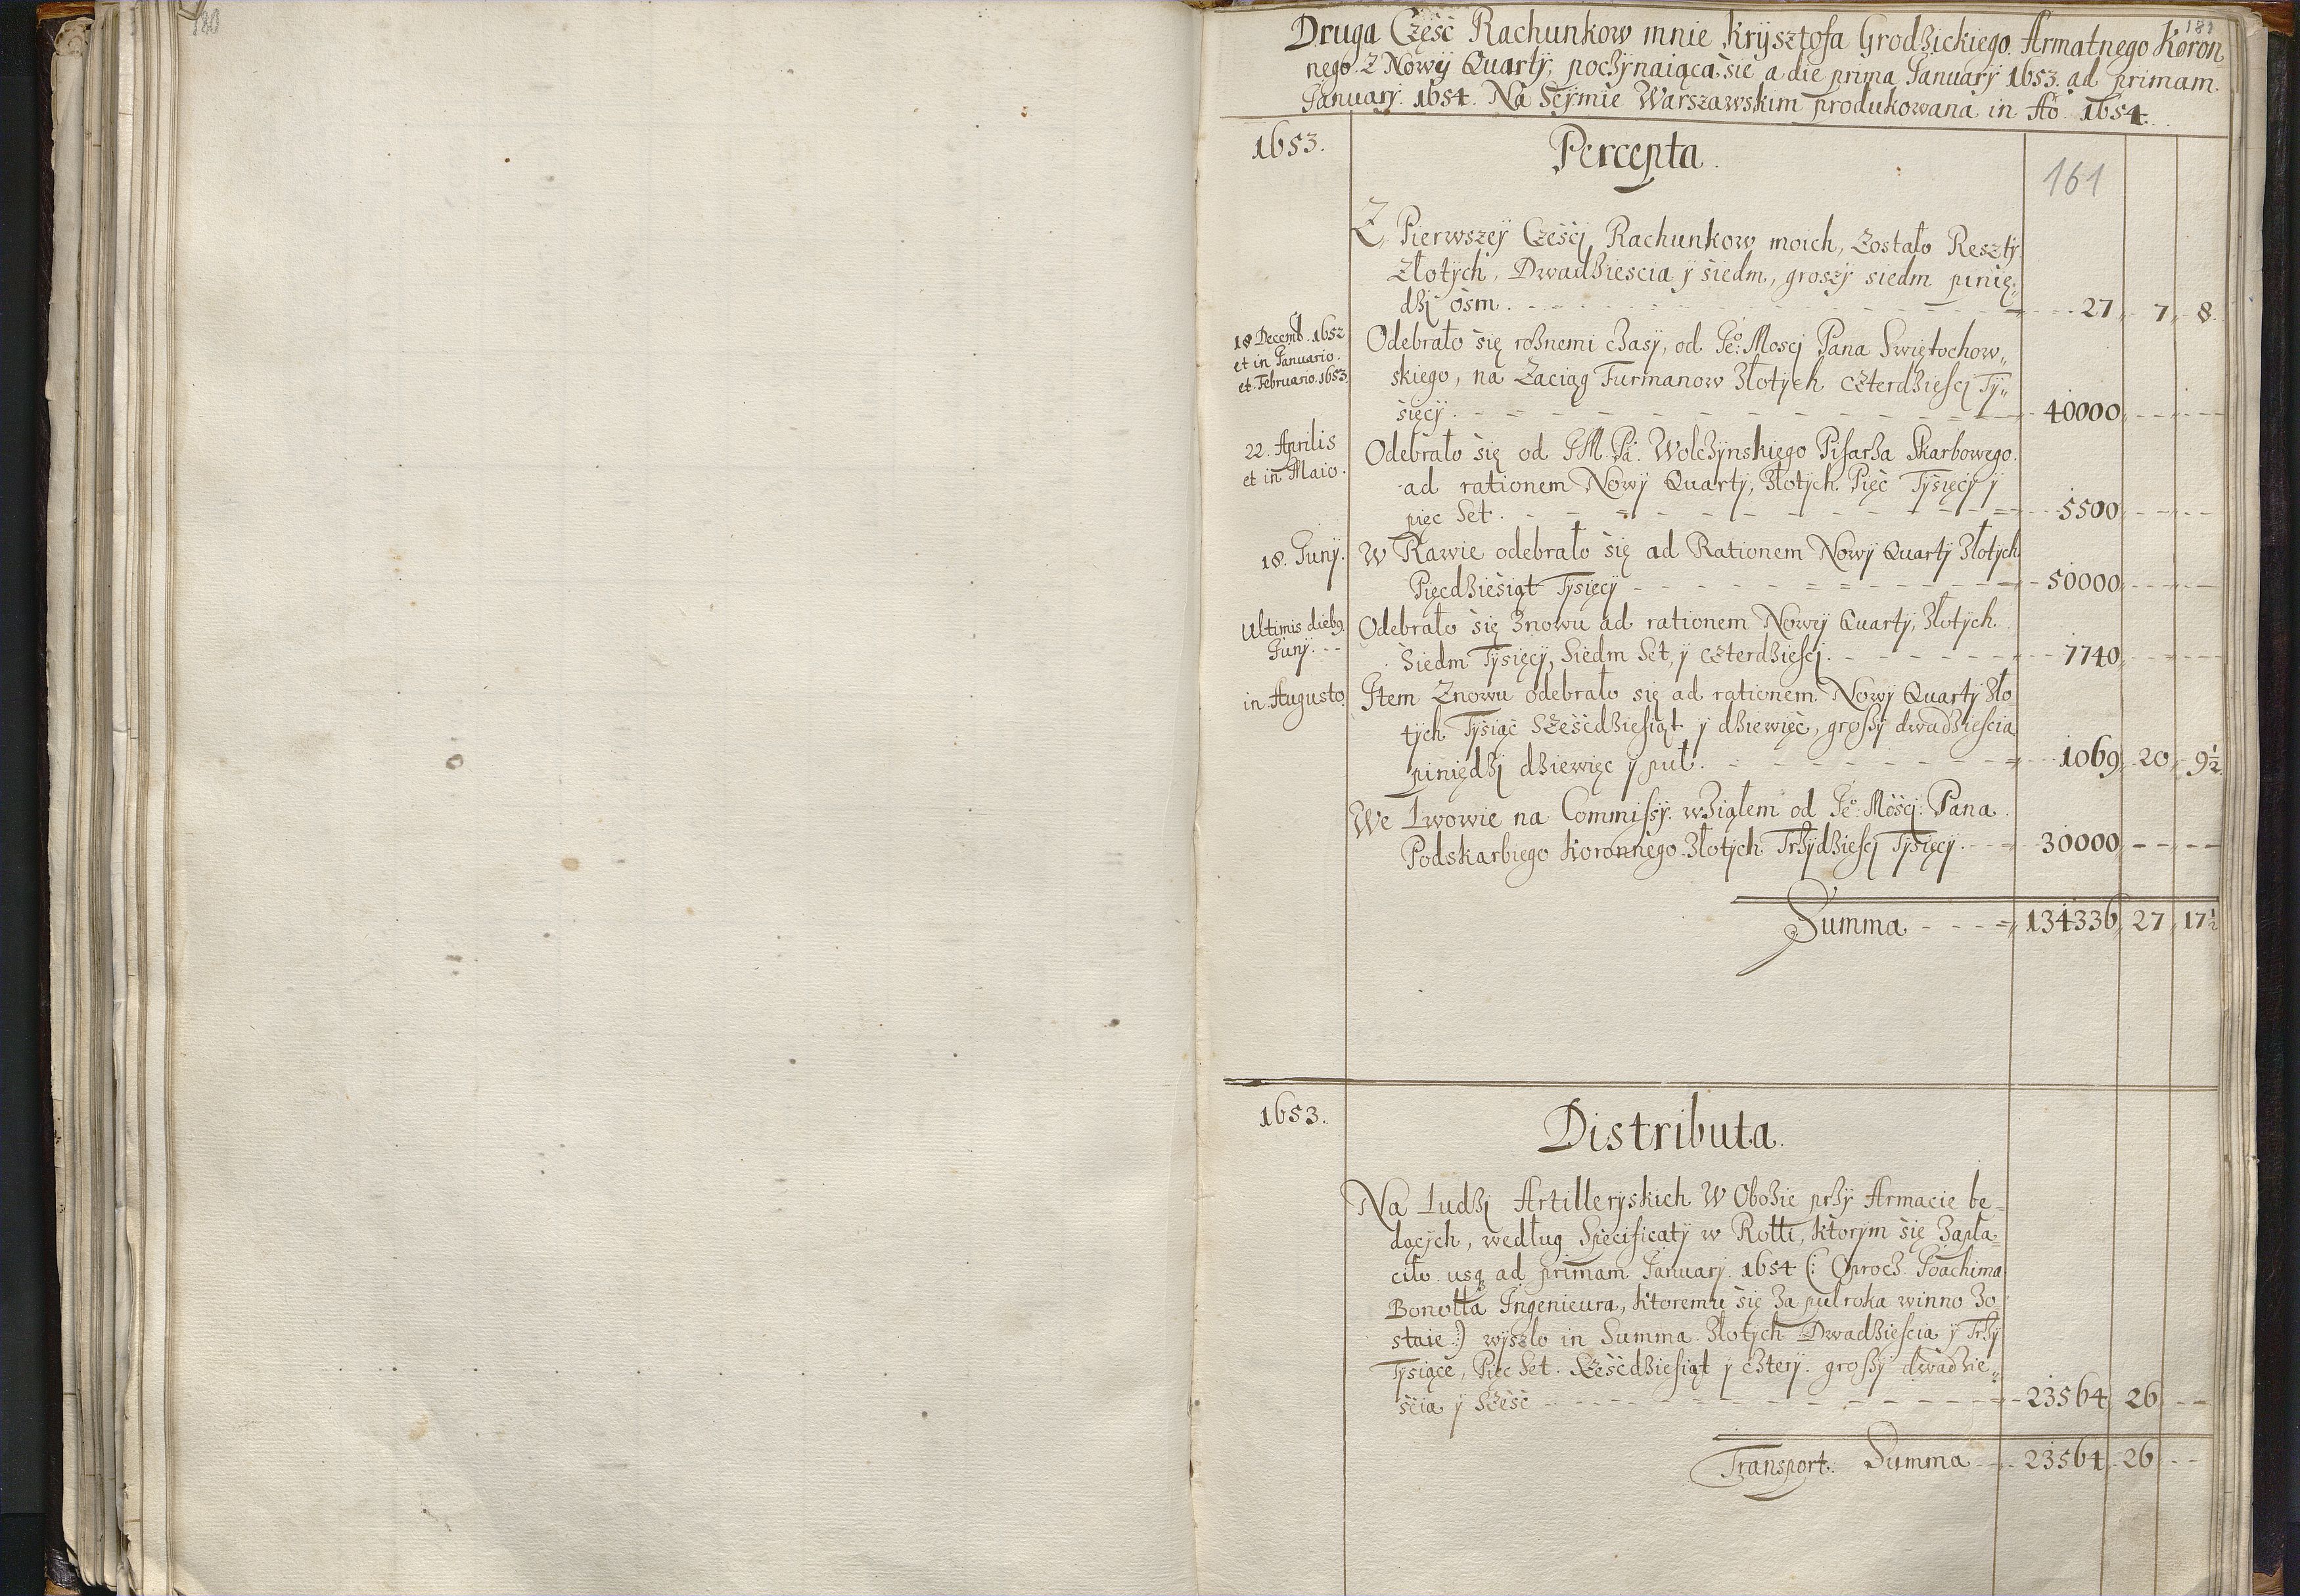 180
181
Druga Część Rachunkow mnie Krysztofa Grodzickiego Armatnego Koron
nego z Nowÿ Quartÿ, poczÿnaiąca sie a die prima Januarÿ 1653. ad primam
Januarÿ. 1654. Na Seÿmie Warszawskim produkowana in Ao. 1654.
1653. Percepta.
161
Z Pierwszeÿ Części Rachunkow moich, zostało Resztÿ
złotÿch, Dwadziescia ÿ siedm, groszÿ siedm pinię„
dzÿ osm. 27 7 8.
18 Decemb. 1652
et in Januario.
et Februario. 1653.
Odebrało się roznemi czasÿ, od Jeo: Mosci Pana Swiętochow„
skiego, na Zaciąg Furmanow Złotÿch czterdziesci Tÿ„
sięcÿ. 40000
22. Aprilis
et in Maio.
Odebrało się od JM. Pa. Wolczÿnskiego Pisarza Skarbowego.
ad rationem Nowÿ Quartÿ, Złotÿch. Pięć Tÿsięcÿ ÿ
pięc Set. 5500
18. Junÿ. W Rawie odebrało się ad Rationem Nowÿ Quartÿ Złotÿch
Pięcdziesiąt Tÿsięcÿ 50000
Ultimis dieb9
Junÿ.
Odebrało się znowu ad rationem Noweÿ Quartÿ, Złotÿch.
Siedm Tÿsięcÿ, Siedm Set, ÿ czterdziesci. 7740
in Augusto. Item Znowu odebrało się ad rationem. Nowÿ Quartÿ Zło
tÿch Tÿsiąc Sześcdziesiąt ÿ dziewięć, groszÿ dwadziescia
piniędzÿ dziewięc ÿ puł. 1069 20 9½
We Lwowie na Commissÿ. wziąłem od Jeo: Mości: Pana
Podskarbiego Koronnego Złotÿch Trzÿdziesci Tÿsięcÿ. 30000
Summa 134336 27 17½
1653. Distributa.
Na Ludzi Artillerÿskich W Obozie przÿ Armacie bę„
dącÿch, według Specificatÿ w Rolli, ktorÿm się Zapła„
ciło usq ad primam Januarÿ. 1654 (: Oprocz Joachima
Bonotta Ingenieura, ktoremu się za pulroka winno Zo
staie :) wÿszło in Summa Złotÿch Dwadziescia ÿ Trzÿ
Tÿsiące, Pięc Set. Sześcdziesiąt ÿ czterÿ. groszÿ dwadzie„
ścia ÿ Sześć 23564 26
Transport. Summa 23564 26